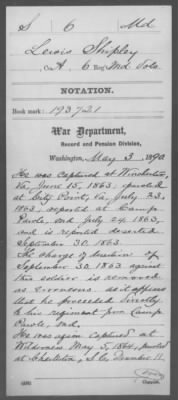 S 6 Md
Lewis Shipley
Co. A, 6 Reg't Md Vols.
NOTATION.
Book mark: 193721
War Department,
Record and Pension Division,
Washington, May 3, 1890.
He was captured at Winchester,
Va., June 15, 1863, paroled
at City Point, Va, July 23,
1863, reported at Camp
Parole, Md, July 24, 1863,
and is reported deserted
September 30. 1863.
The charge of desertion of
September 30. 1863 against
this soldier is removed
as erroneous. as it appears
that he proceeded directly
to his regiment from Camp
Parole, Md.
He was again captured at
Wilderness May 5, 1864, paroled
at Charleston, S.C. December 11.